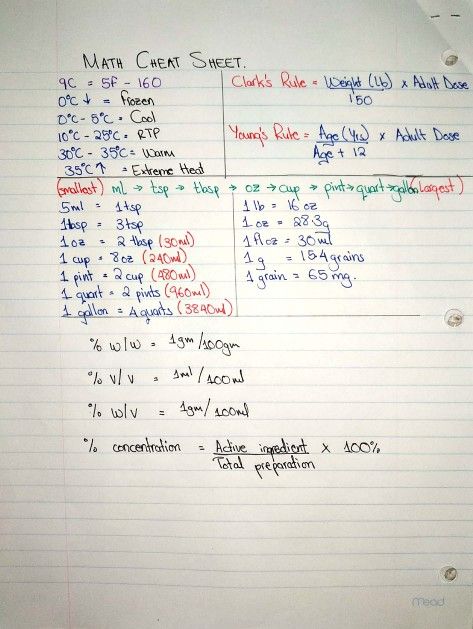 MATH CHEAT SHEET.
9C = 5F - 160
0°C ↓ = Frozen
0°C - 5°C = Cool
10°C - 25°C = RTP
30°C - 35°C = Warm
35°C ↑ = Extreme Heat
Clark's Rule = Weight (Lb) x Adult Dose
150
Young's Rule = Age (Yrs) x Adult Dose
Age + 12
(smallest) ml → tsp → tbsp → oz → cup → pint → quart → gallon (largest)
5ml = 1tsp
1tbsp = 3tsp
1oz = 2tbsp (30ml)
1 cup = 8oz (240ml)
1 pint = 2cup (480ml)
1 quart = 2 pints (960ml)
1 gallon = 4quarts (3840ml)
1 lb = 16 oz
1 oz = 28.3g
1 fl oz = 30ml
1 g = 15.4 grains
1 grain = 65mg.
% w/w = 1gm/100gm
% v/v = 1ml/100ml
% w/v = 1gm/100ml
% concentration = Active ingredient x 100%
Total preparation
mead